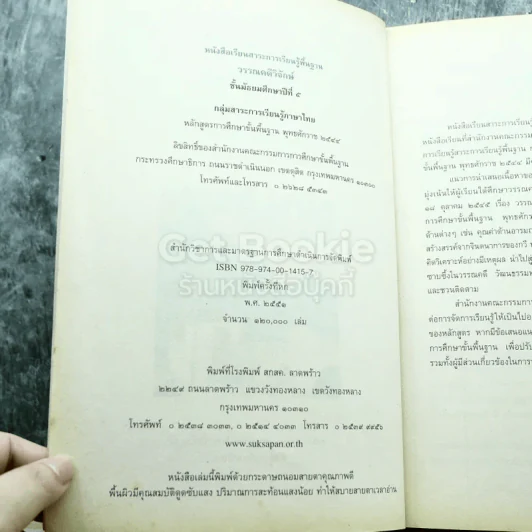 หนังสือเรียนสาระการเรียนรู้พื้นฐาน
วรรณคดีวิจักษ์
ชั้นมัธยมศึกษาปีที่ ๕
กลุ่มสาระการเรียนรู้ภาษาไทย
หลักสูตรการศึกษาขั้นพื้นฐาน พุทธศักราช ๒๕๔๔
ลิขสิทธิ์ของสำนักงานคณะกรรมการการศึกษาขั้นพื้นฐาน
กระทรวงศึกษาธิการ ถนนราชดำเนินนอก เขตดุสิต กรุงเทพมหานคร ๑๐๓๐๐
โทรศัพท์และโทรสาร ๐ ๒๖๒๘
Get Bookie
ร้านหนังสือบุคกี้
สำนักวิชาการและมาตรฐานการศึกษาดำเนินการจัดพิมพ์
ISBN 978-974-00-1415-7
พิมพ์ครั้งที่
พ.ศ. ๒๕๕๑
จำนวน ๑๒๐,๐๐๐ เล่ม
พิมพ์ที่โรงพิมพ์ สกสค. ลาดพร้าว
๒๒๔๙ ถนนลาดพร้าว แขวงวังทองหลาง เขตวังทองหลาง
กรุงเทพมหานคร ๑๐๓๑๐
โทรศัพท์ ๐ ๒๕๓๘ ๓๐๓๓, ๐ ๒๕๑๔ ๔๐๓๓ โทรสาร ๐ ๒๕๓๙ ๙๙๕๖
www.suksapan.or.th
หนังสือเล่มนี้พิมพ์ด้วยกระดาษถนอมสายตาคุณภาพดี
พื้นผิวมีคุณสมบัติดูดซับแสง ปริมาณการสะท้อนแสงน้อย ทำให้สบายสายตาเวลาอ่าน
หนังสือเรียนสาระการเรียนรู้
หนังสือที่สำนักงานคณะกรรม
การเรียนรู้สาระการเรียนรู้พื้นฐาน
ขั้นพื้นฐาน พุทธศักราช ๒๕๔๔
แนวการนำเสนอเนื้อหาของ
มุ่งเน้นให้ผู้เรียนได้ศึกษาวรรณค
๑๘ ตุลาคม ๒๕๔๕ เรื่อง วรรณ
การศึกษาขั้นพื้นฐาน พุทธศัก
ด้านต่างๆ เช่น คุณค่าด้านอารมณ์
สร้างสรรค์จากจินตนาการของกวี
คิดวิเคราะห์อย่างมีเหตุผล นำไปสู่
ซาบซึ้งในวรรณคดี วัฒนธรรม
และชวนติดตาม
สำนักงานคณะกรรมการ
ต่อการจัดการเรียนรู้ให้เป็นไปอ
ของหลักสูตร หากมีข้อเสนอแน
การศึกษาขั้นพื้นฐาน เพื่อปรับ
รวมทั้งผู้มีส่วนเกี่ยวข้องในการ